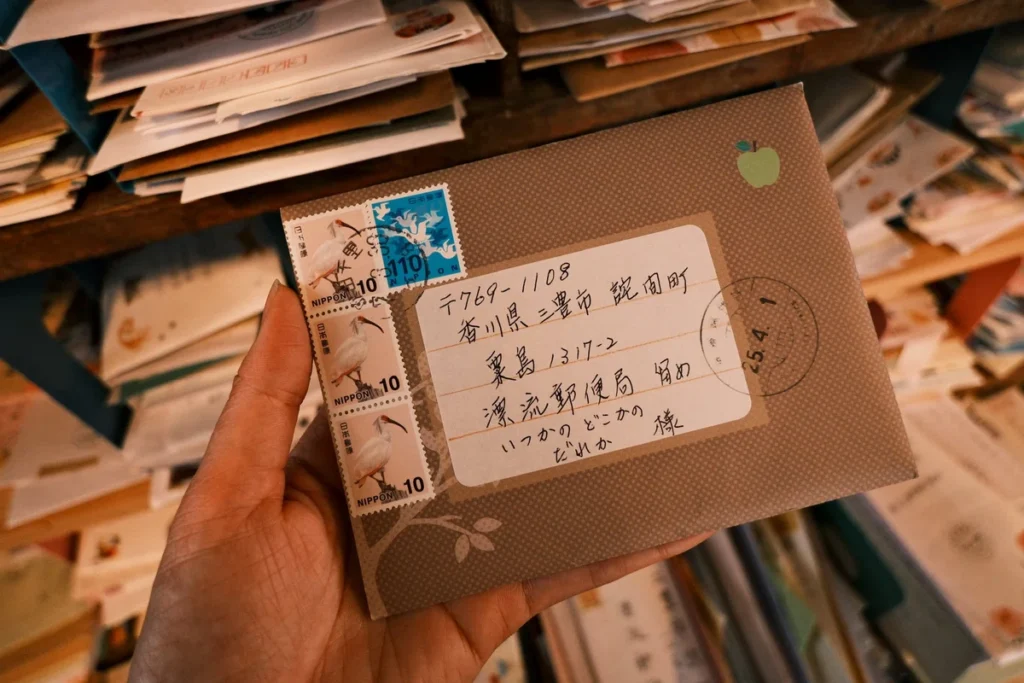 日本郵便
NIPPON 10
日本郵便
110
NIPPON
日本郵便
NIPPON 10
日本郵便
NIPPON 10
〒769-1108
香川県三豊市 詫間町
粟島 1317-2
漂流郵便局 留め
いつかの どこかの
だれか 様
25.4.1